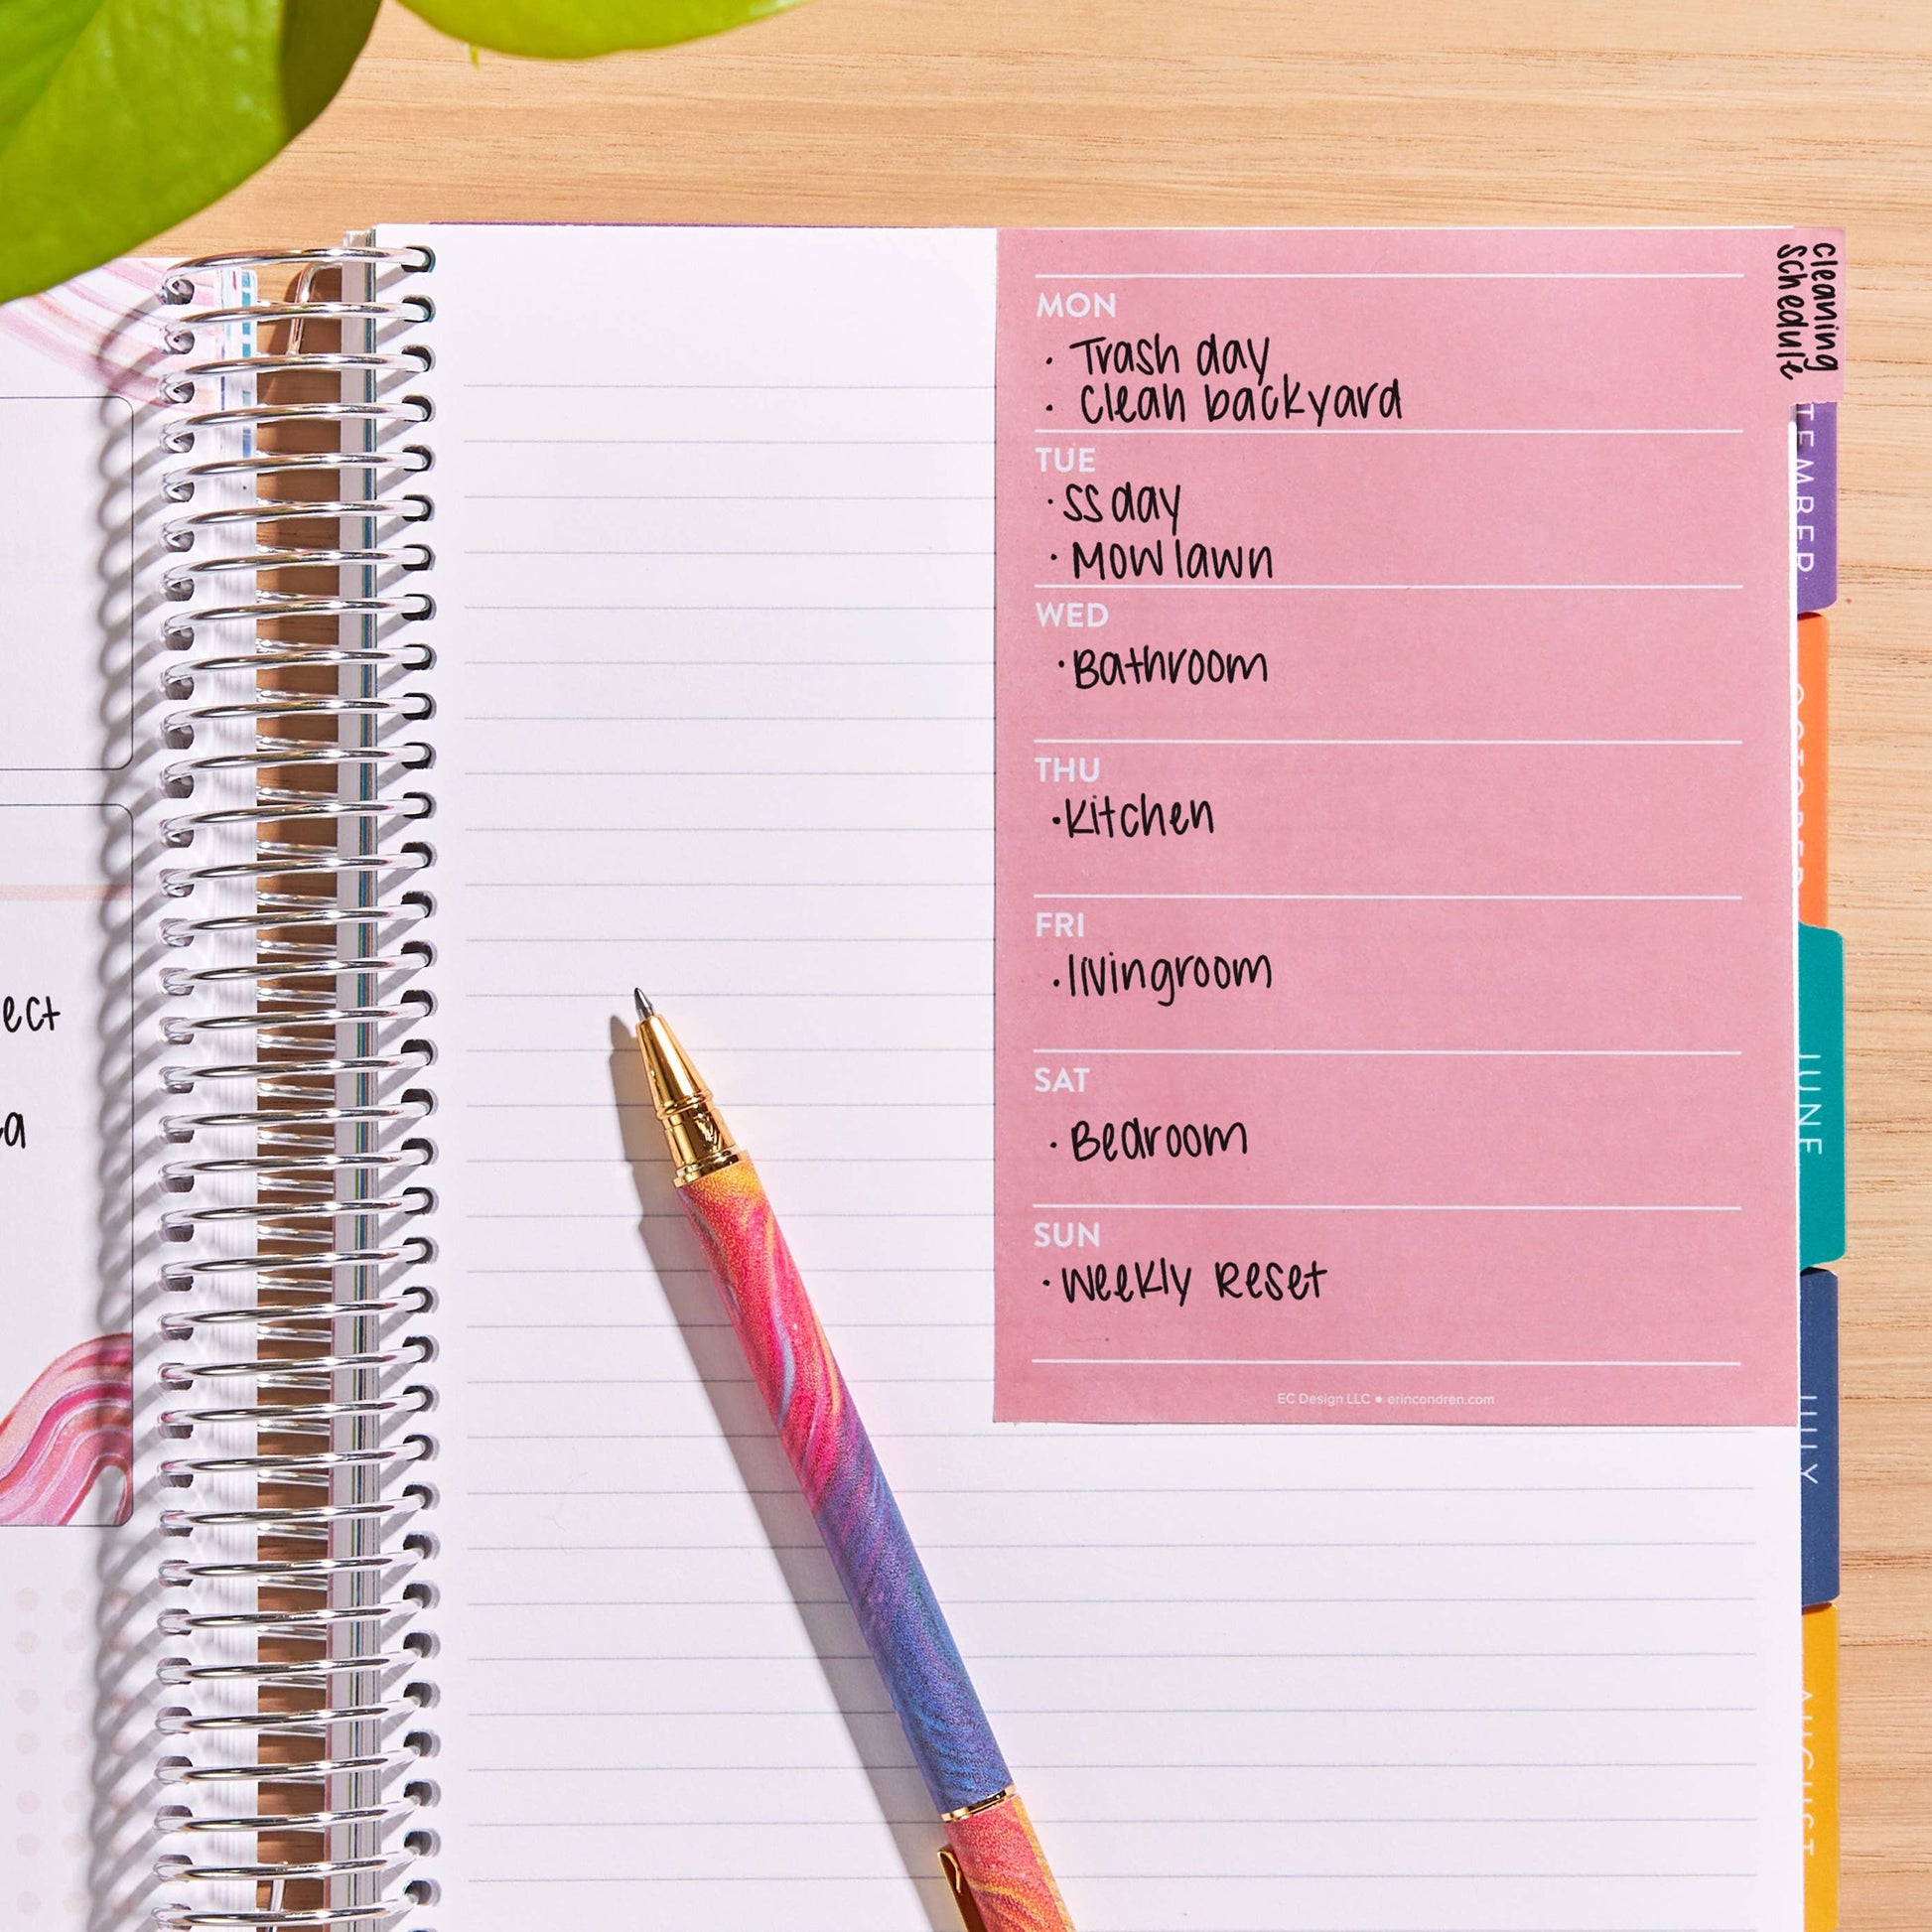 cleaning
schedule
MON
• Trash day
• Clean backyard
TUE
• SS day
• Mow lawn
WED
• Bathroom
THU
• Kitchen
FRI
• livingroom
SAT
• Bedroom
SUN
• Weekly Reset
EC Design LLC • erincondren.com
TEMBER
OCTOBER
JUNE
JULY
AUGUST
ect
a